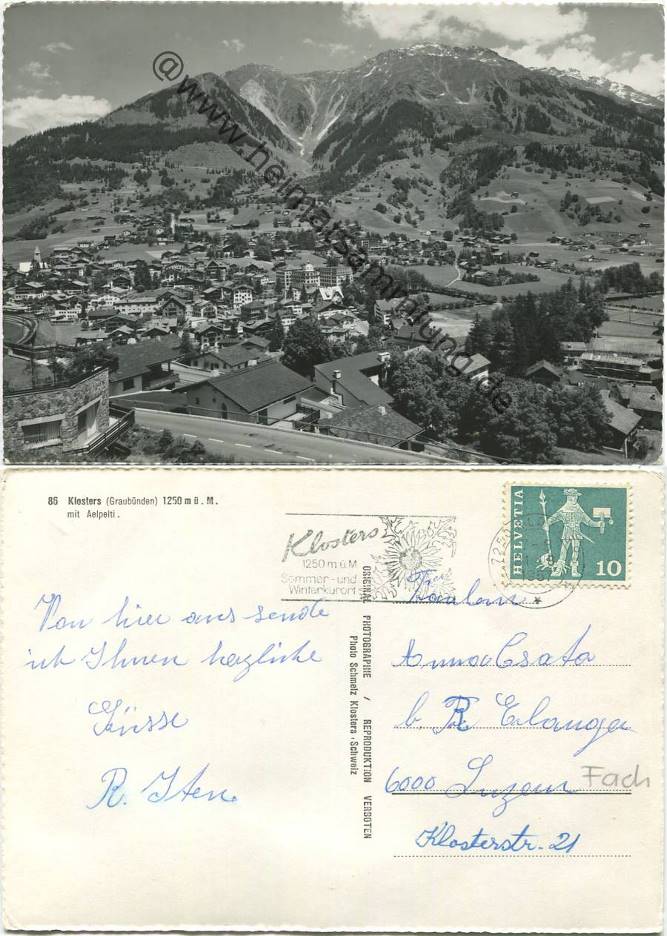 @www.heimatsammlung.de
86 Klosters (Graubünden) 1250 m ü. M.
mit Aelpelti.
Klosters
1250 m ü M
Sommer- und
Winterkurort
HELVETIA
10
ORIGINAL PHOTOGRAPHIE / REPRODUKTION VERBOTEN
Photo Schmelz Klosters, Schweiz
Von hier aus sende
ich Ihnen herzliche
Grüsse
R. Iten
Fräulein
Anna Csata
b. R. Erlanger
6000 Luzern
Fach
Klosterstr. 21